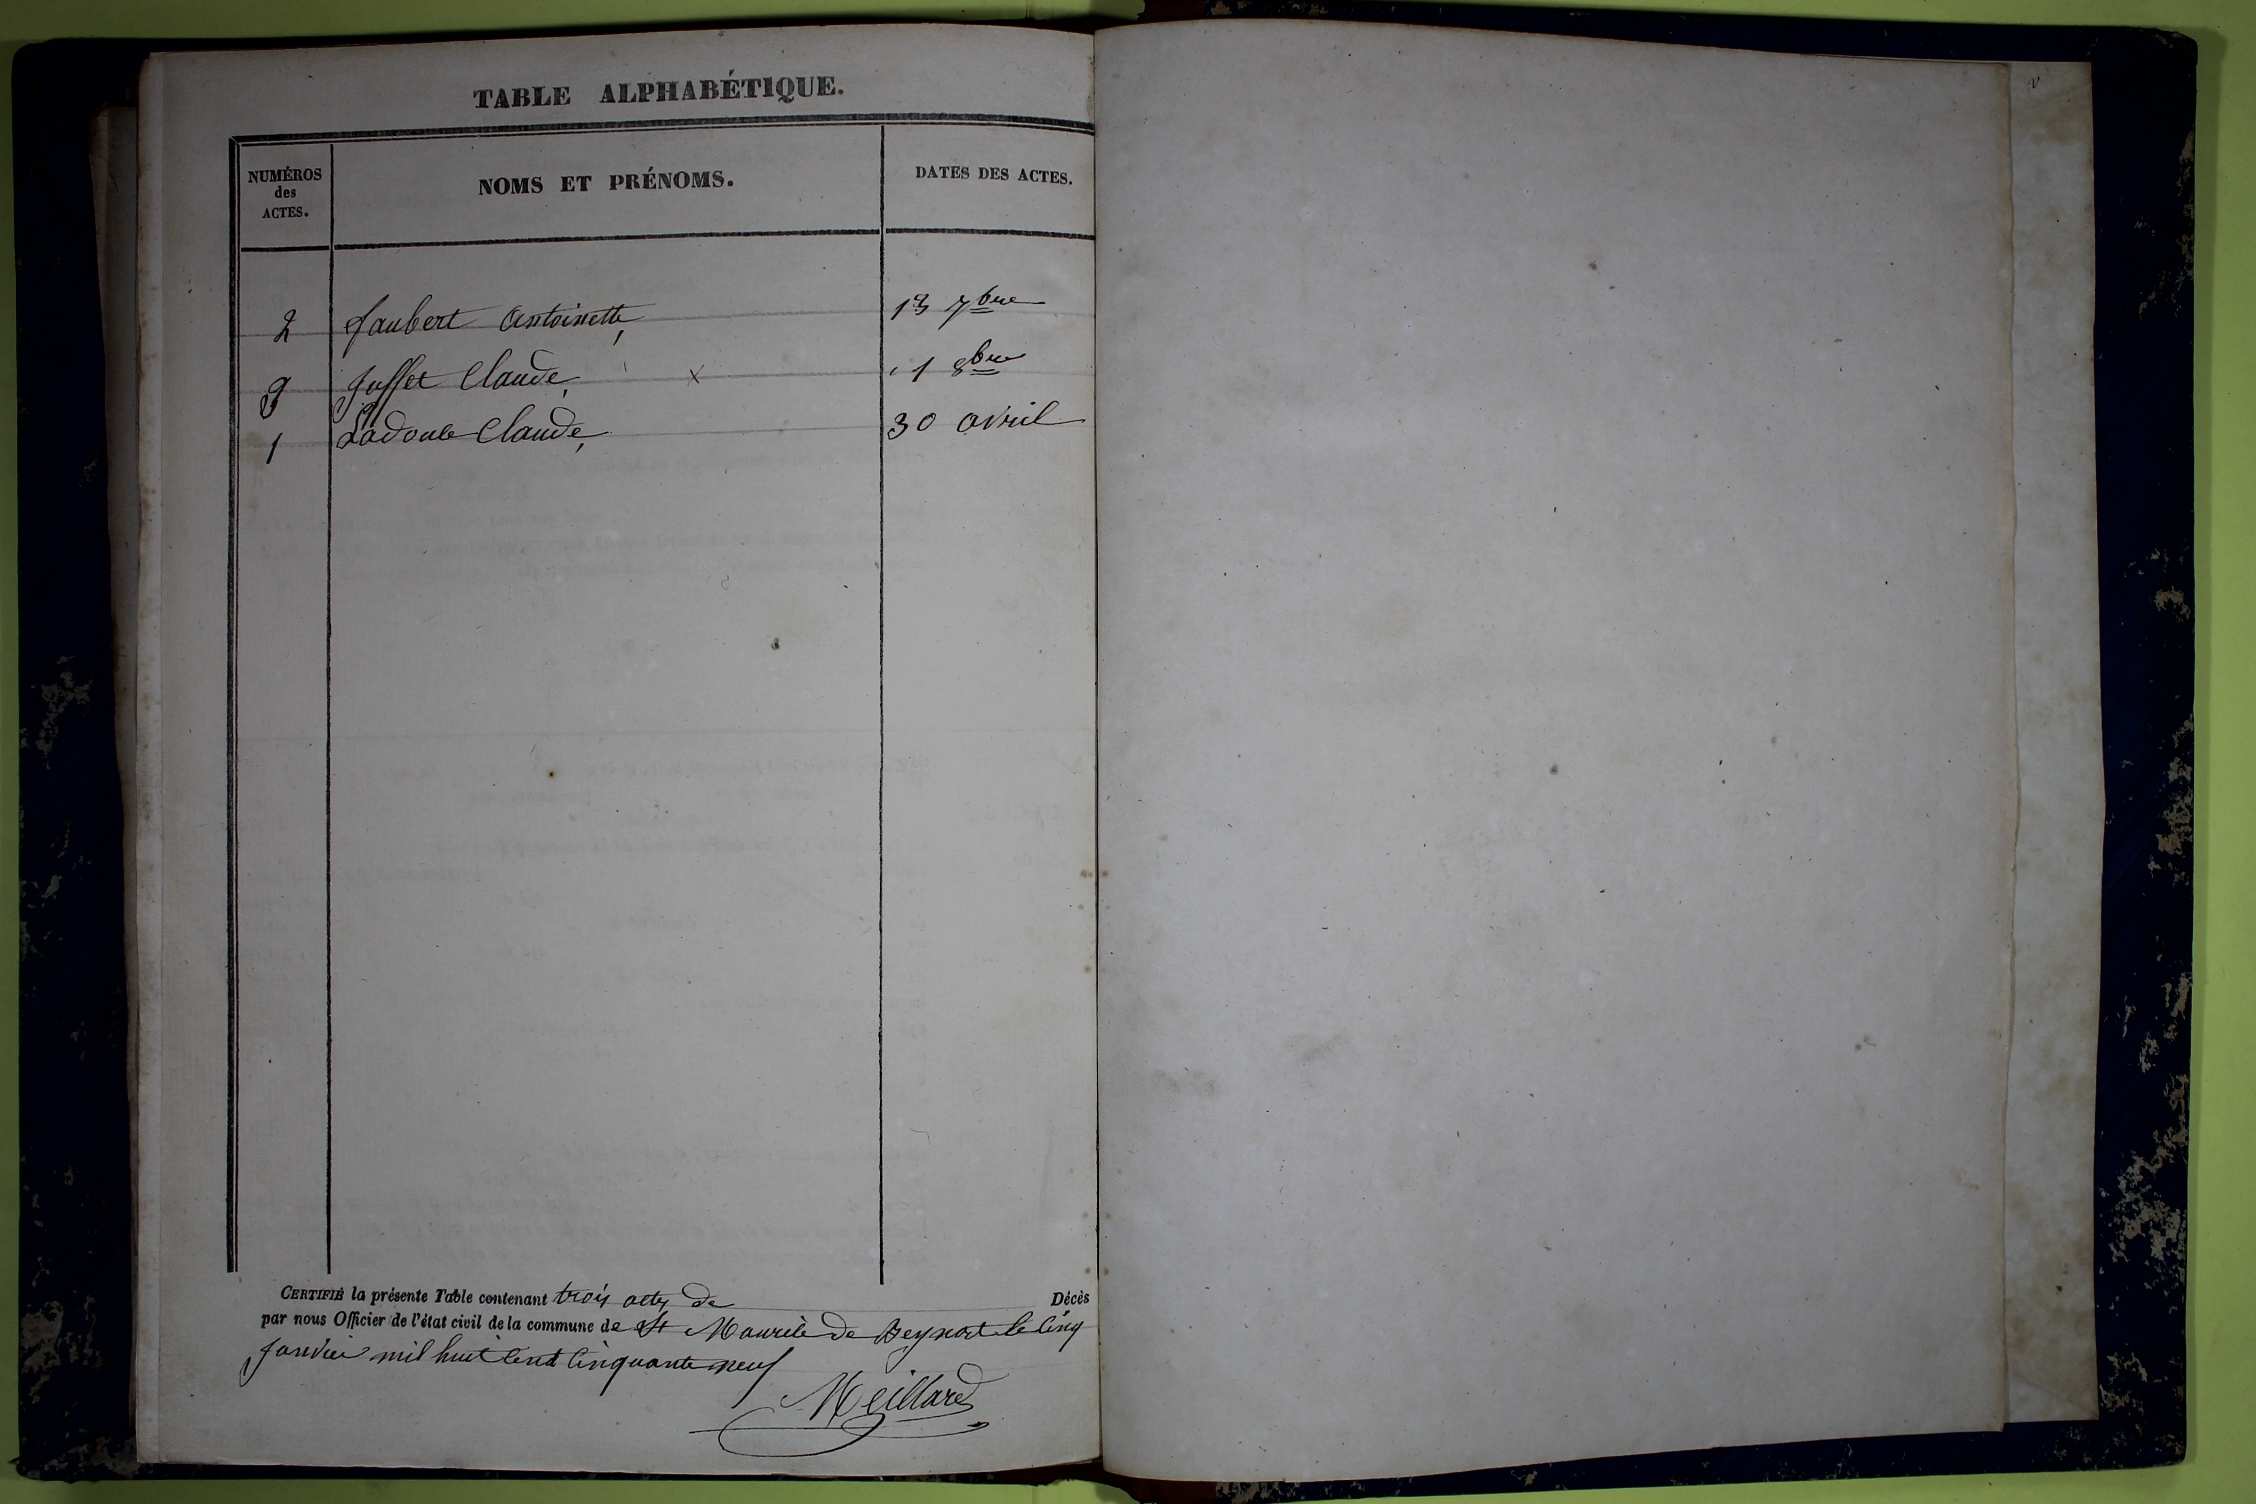 TABLE ALPHABÉTIQUE.
NUMÉROS des ACTES. NOMS ET PRÉNOMS. DATES DES ACTES.
2 Jaubert Antoinette, 13 7bre
3 Claude, x 1 8bre
1 Claude, 30 avril
CERTIFIÉ la présente Table contenant trois actes de Décès
par nous Officier de l'état civil de la commune de St Maurice de Beynost le cinq
Janvier mil huit cent cinquante neuf
Meillard